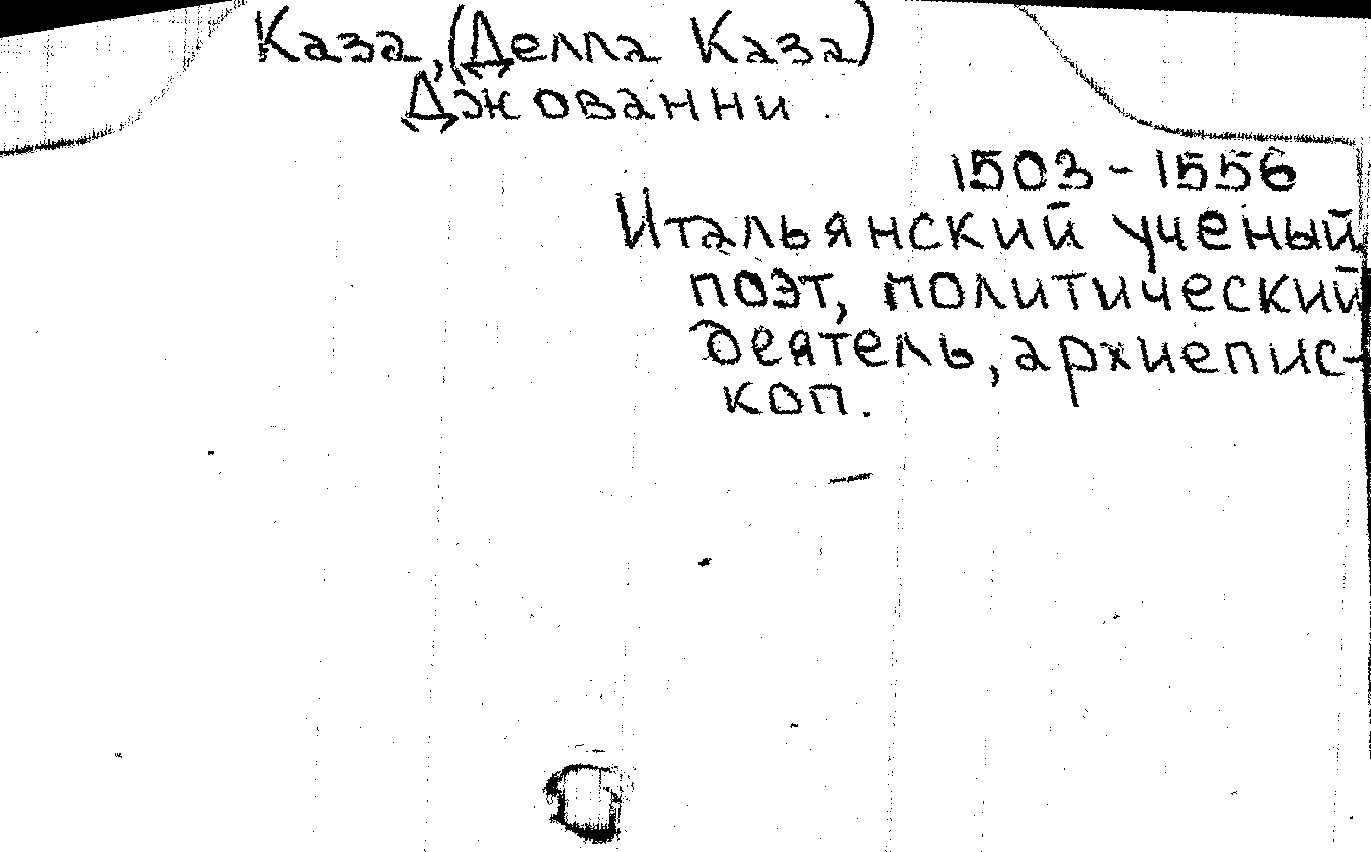 Каза, (Делла Каза)
Джованни.
1503-1556
Итальянский ученый,
поэт, политический
деятель, архиепис-
коп.